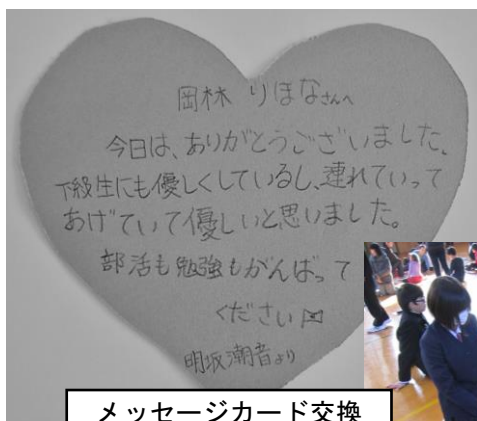 岡林 りほなさんへ
今日は、ありがとうございました、
下級生にも優しくしているし、連れていって
あげていて優しいと思いました。
部活も勉強もがんばって
ください
明坂潮音より
メッセージカード交換